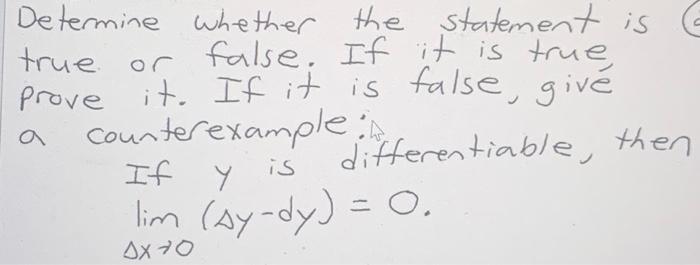 Determine whether the statement is
true or false. If it is true,
prove it. If it is false, give
a counterexample:
If y is differentiable, then
lim (Δy-dy) = 0.
Δx→0